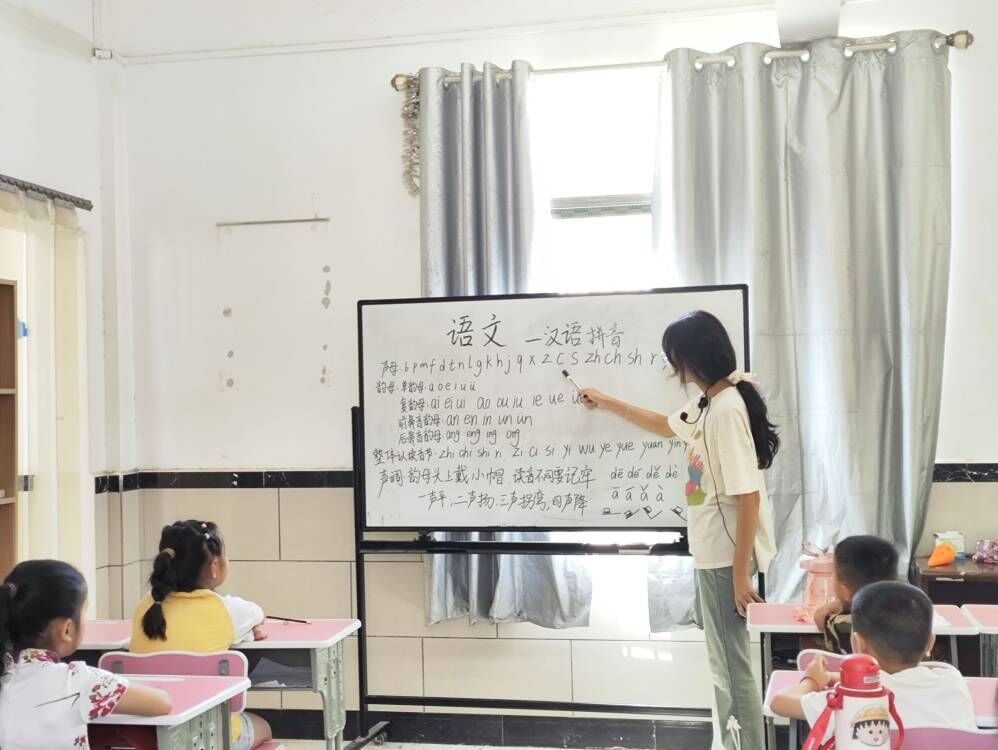 语文 —汉语拼音
声母:b p m f d t n l g k h j q x z c s zh ch sh r
韵母:单韵母:a o e i u ü
复韵母:ai ei ui ao ou iu ie ue
前鼻音韵母:an en in un ün
后鼻音韵母:ang eng ing ong
整体认读音节:zhi chi shi ri zi ci si yi wu ye yue yuan yin
声调:韵母头上戴小帽,读音不同要记牢
一声平,二声扬,三声拐弯,四声降
dē dé dě dè
ā á ǎ à